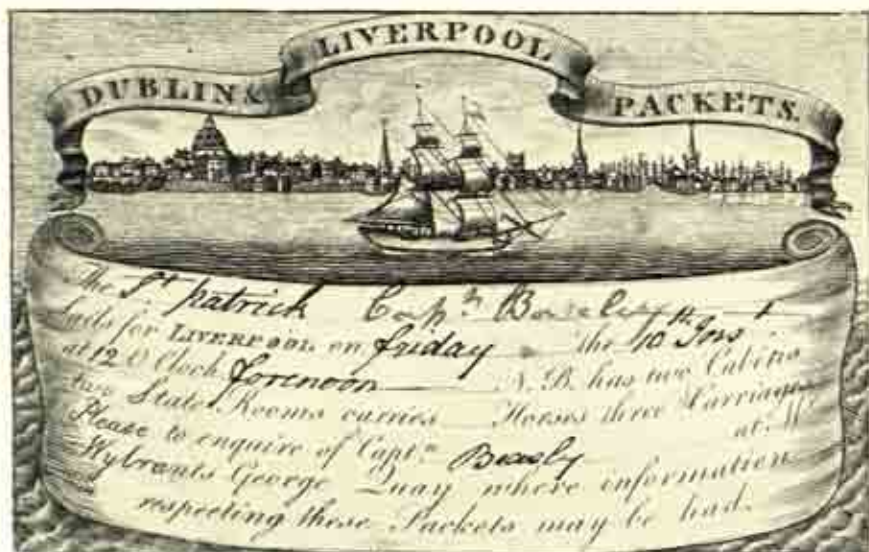 DUBLIN &
LIVERPOOL
PACKETS.
The St. Patrick Captn
Sails for LIVERPOOL on friday the 10th
at 12 O Clock forenoon N.B. has two Cabins
two State Rooms carries Horses three Carriages
Please to enquire of Captn. Beasly at
Wybrants George Quay where information
respecting these Packets may be had.